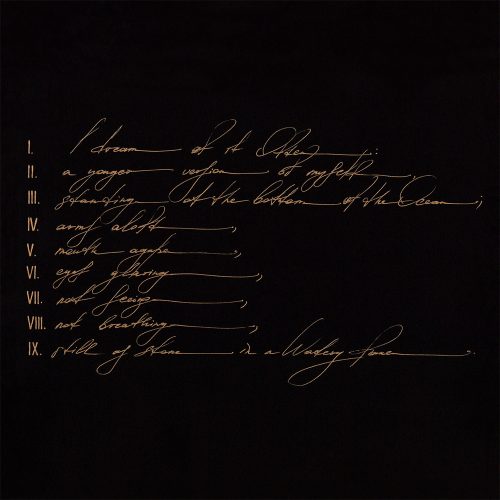 I. I dream of it Often:
II. a yonger version of myself,
III. standing at the bottom of the Ocean;
IV. arms aloft,
V. mouth agape,
VI. eyes glaring,
VII. not seeing,
VIII. not breathing,
IX. still as stone in a Watery Fane.